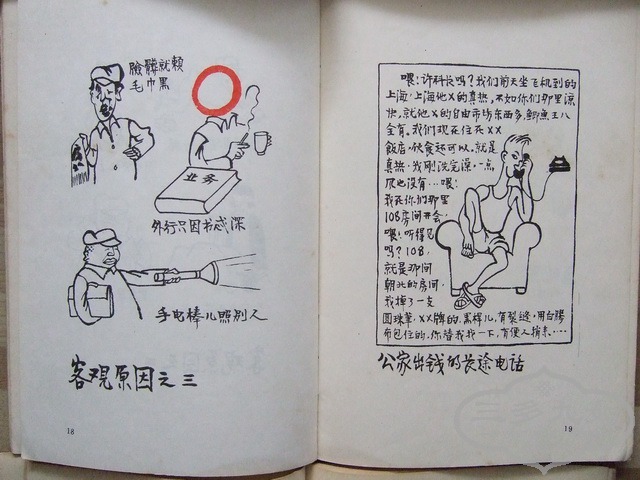 臉髒就賴
毛巾黑
业务
外行只因书忒深
手电棒儿照别人
客观原因之三
18
喂！许科长吗？我们前天坐飞机到的
上海，上海他X的真热，不如你们那里凉
快，就他X的自由市场东西多，鲫鱼王八
全有。我们现在住在XX
飯店，伙食还可以，就是
真热，我刚洗完澡，一点
尿也没有…喂！
我在你们那里
108房间开会，
喂！听得见
吗？108，
就是那间
朝北的房间，
我掉了一支
圆珠笔，XX牌的，黑杆儿，有裂缝，用白膠
布包住的，你替我找一下，有便人捎来……
公家出钱的长途电话
19